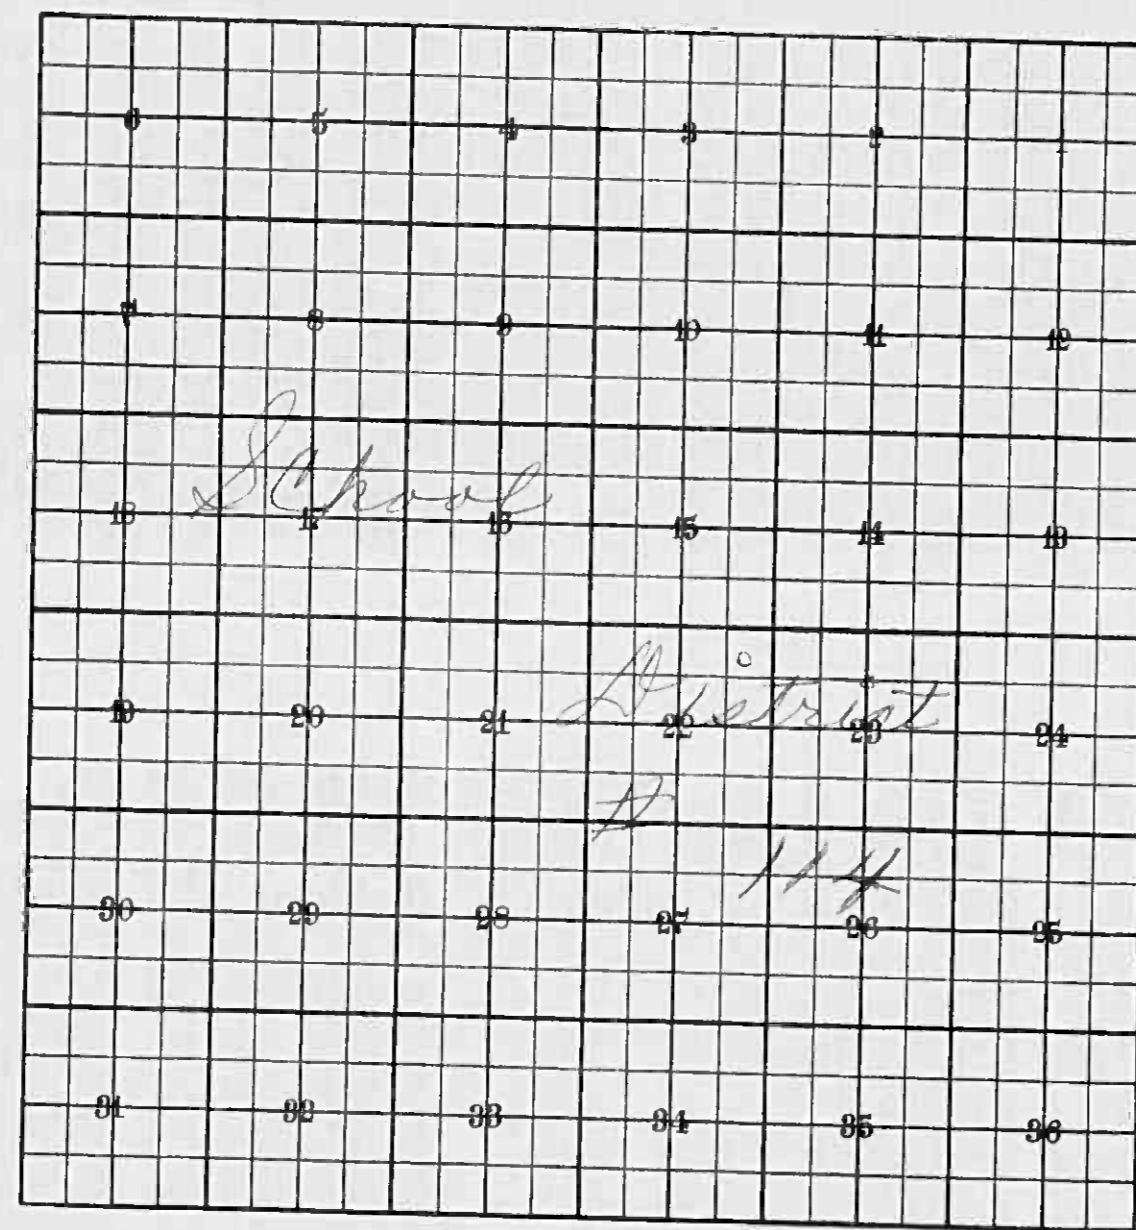 6 5 4 3 2
7 8 9 10 11 12
School
18 17 16 15 14 13
District
19 20 21 22 23 24
#
114
30 29 28 27 26 25
31 32 33 34 35 36